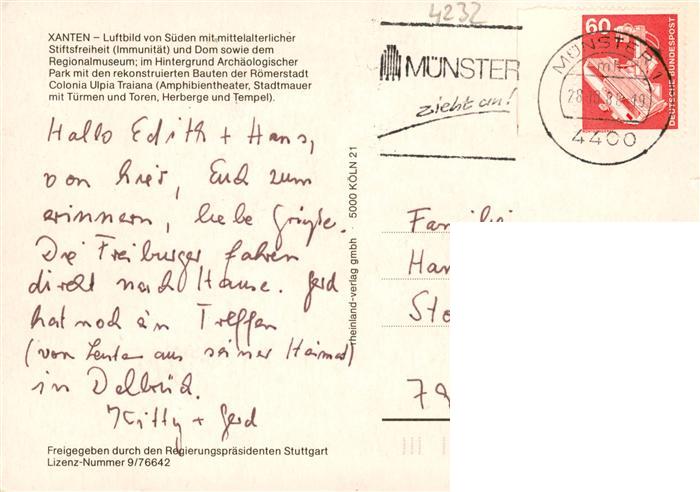 4232
XANTEN – Luftbild von Süden mit mittelalterlicher
Stiftsfreiheit (Immunität) und Dom sowie dem
Regionalmuseum; im Hintergrund Archäologischer
Park mit den rekonstruierten Bauten der Römerstadt
Colonia Ulpia Traiana (Amphibientheater, Stadtmauer
mit Türmen und Toren, Herberge und Tempel).
MÜNSTER
zieht an!
MÜNSTER
4400
60
DEUTSCHE BUNDESPOST
Hallo Edith + Hans,
von hier, Euch zum
erinnern, liebe Grüße.
Die Freiburger fahren
direkt nach Hause. Gerd
hat noch ein Treffen
(von Leuten aus seiner Heimat)
in Delbrück.
Kitty + Gerd
rheinland-verlag gmbh · 5000 KÖLN 21
Familie
Han
Sto
79
Freigegeben durch den Regierungspräsidenten Stuttgart
Lizenz-Nummer 9/76642